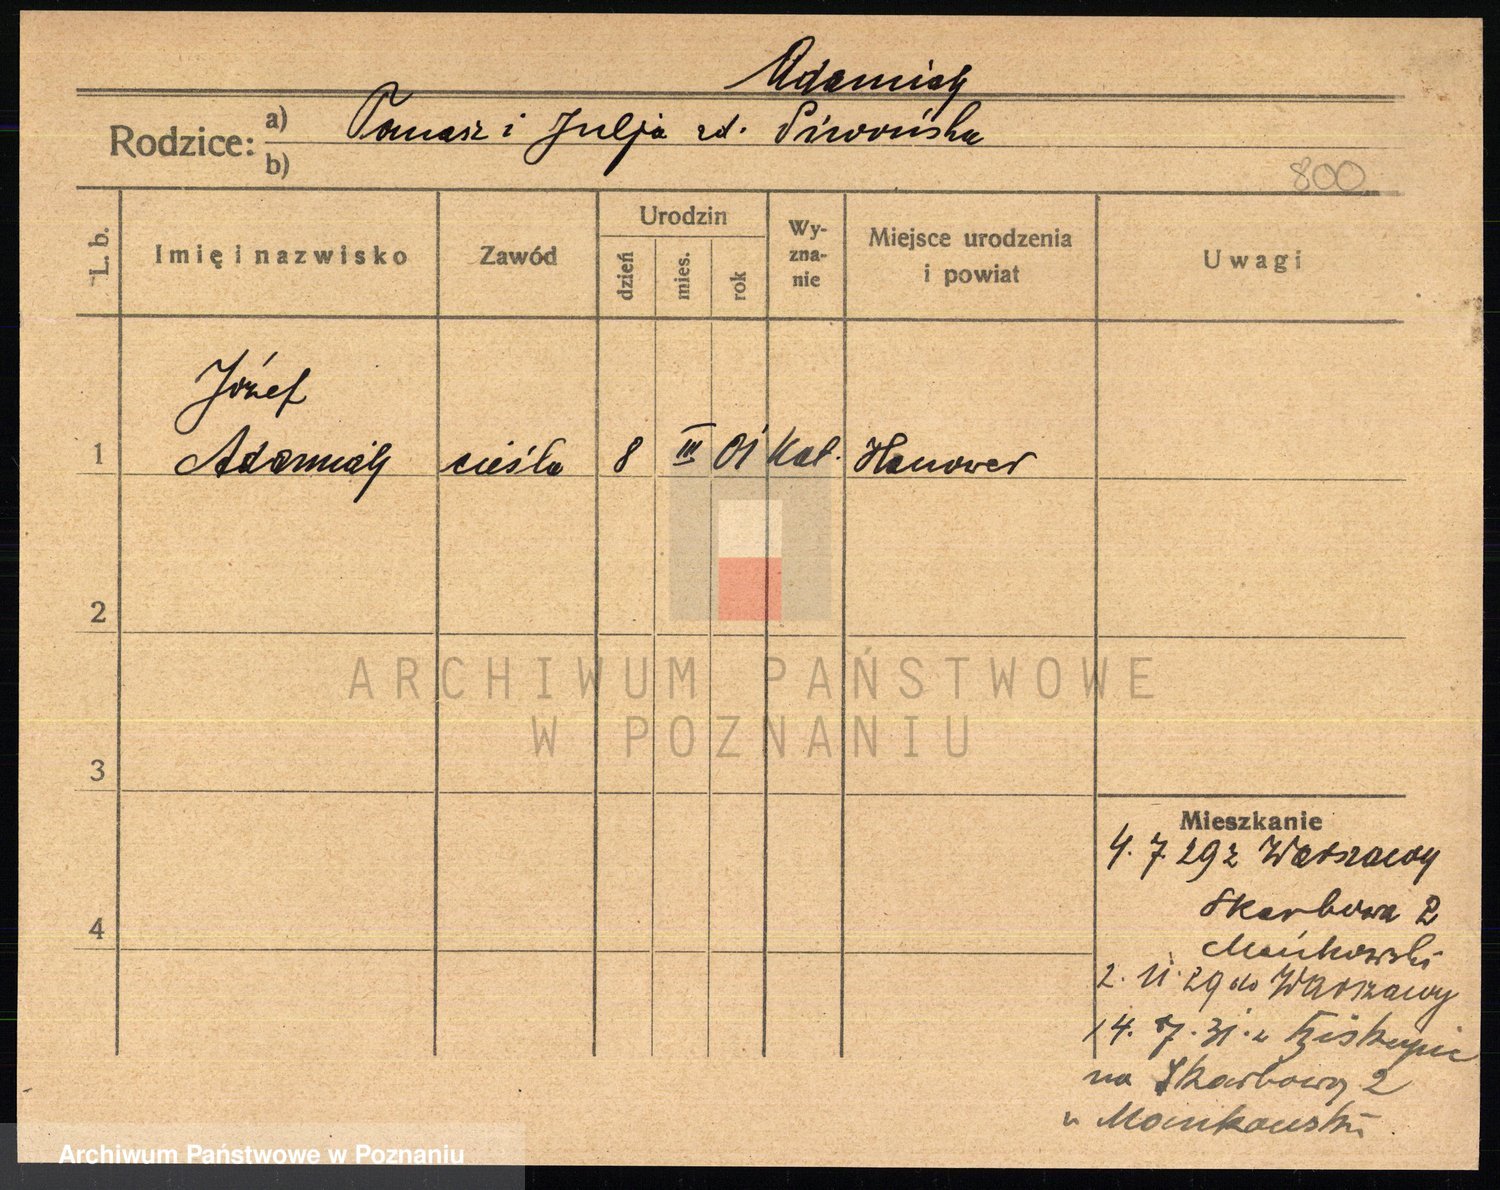 Adamiak
Rodzice: a) Tomasz i Julja zd. Siwońska
b)
800
L. b.
Imię i nazwisko
Zawód
Urodzin
dzień
mies.
rok
Wy-
zna-
nie
Miejsce urodzenia
i powiat
Uwagi
Józef
1 Adamiak cieśla 8 III 01 kat. Hanower
2
3
4
ARCHIWUM PAŃSTWOWE
W POZNANIU
Mieszkanie
4. 7 29 z Warszawy
Skarbowa 2
Mańkowski
2. 11. 29 do Warszawy
14. 7. 31. z
na Skarbową 2
u Mankowski
Archiwum Państwowe w Poznaniu